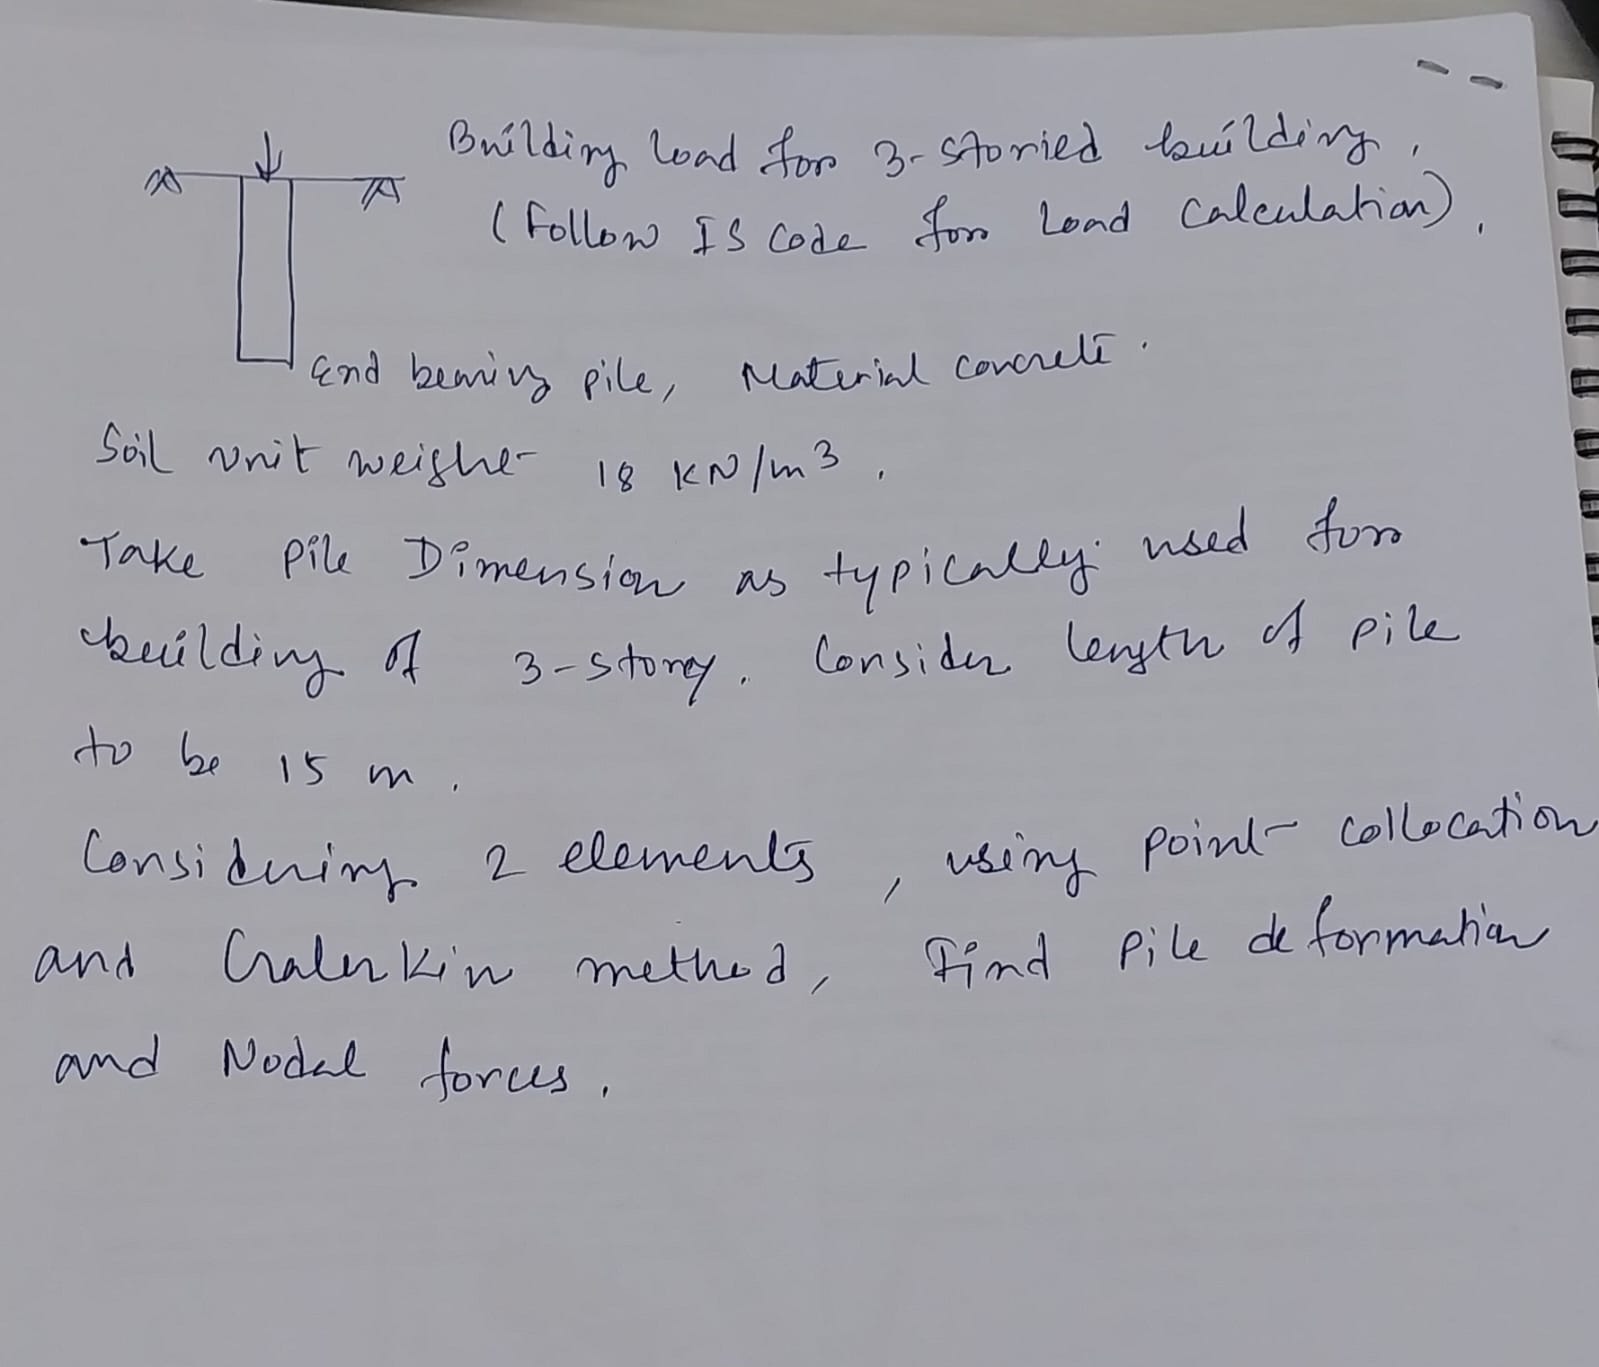 Building load for 3-storied building,
(Follow IS code for Load calculation),
End bearing pile, Material concrete.
Soil unit weight 18 KN/m3,
Take pile Dimension as typically used for
building of 3-storey. Consider length of pile
to be 15 m.
Considering 2 elements, using point collocation
and Galerkin method, Find pile deformation
and Nodal forces.